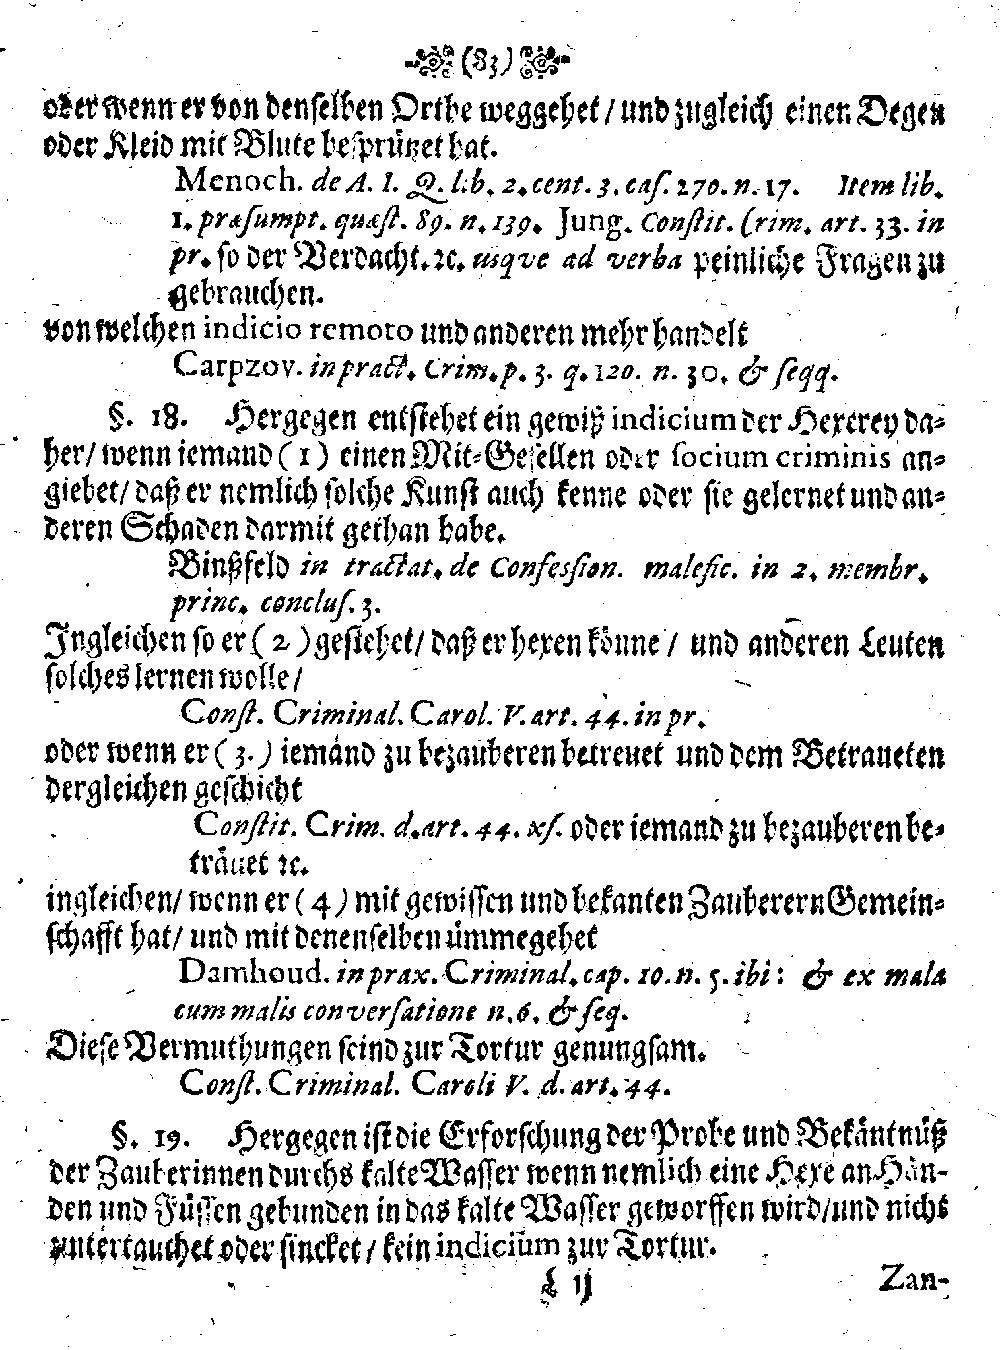 (83)
oder wenn er von denselben Orthe weggehet / und zugleich einen Degen
oder Kleid mit Blute besprützet hat.
Menoch. de A. I. Q. lib. 2. cent. 3. cas. 270. n. 17. Item lib.
1. præsumpt. quæst. 89. n. 139. Jung. Constit. Crim. art. 33. in
pr. so der Verdacht. ꝛc. usqve ad verba peinliche Fragen zu
gebrauchen.
von welchen indicio remoto und anderen mehr handelt
Carpzov. in pract. Crim. p. 3. q. 120. n. 30. & seqq.
§. 18. Hergegen entstehet ein gewiß indicium der Hexerey da-
her / wenn iemand ( 1 ) einen Mit-Gesellen oder socium criminis an-
giebet / daß er nemlich solche Kunst auch kenne oder sie gelernet und an-
deren Schaden darmit gethan habe.
Binßfeld in tractat. de Confession. malefic. in 2. membr.
princ. conclus. 3.
Ingleichen so er ( 2 ) gestehet / daß er hexen könne / und anderen Leuten
solches lernen wolle /
Const. Criminal. Carol. V. art. 44. in pr.
oder wenn er ( 3. ) iemand zu bezauberen betreuet und dem Betraueten
dergleichen geschicht
Constit. Crim. d. art. 44. xs. oder iemand zu bezauberen be-
träuet ꝛc.
ingleichen / wenn er ( 4 ) mit gewissen und bekanten Zauberern Gemein-
schafft hat / und mit denenselben ümmegehet
Damhoud. in prax. Criminal. cap. 10. n. 5. ibi : & ex mala
cum malis conversatione n. 6. & seq.
Diese Vermuthungen seind zur Tortur genungsam.
Const. Criminal. Caroli V. d. art. 44.
§. 19. Hergegen ist die Erforschung der Probe und Bekäntnüß
der Zauberinnen durchs kalte Wasser wenn nemlich eine Hexe an Hän-
den und Füssen gebunden in das kalte Wasser geworffen wird / und nicht
untertauchet oder sincket / kein indicium zur Tortur.
L ij Zan-